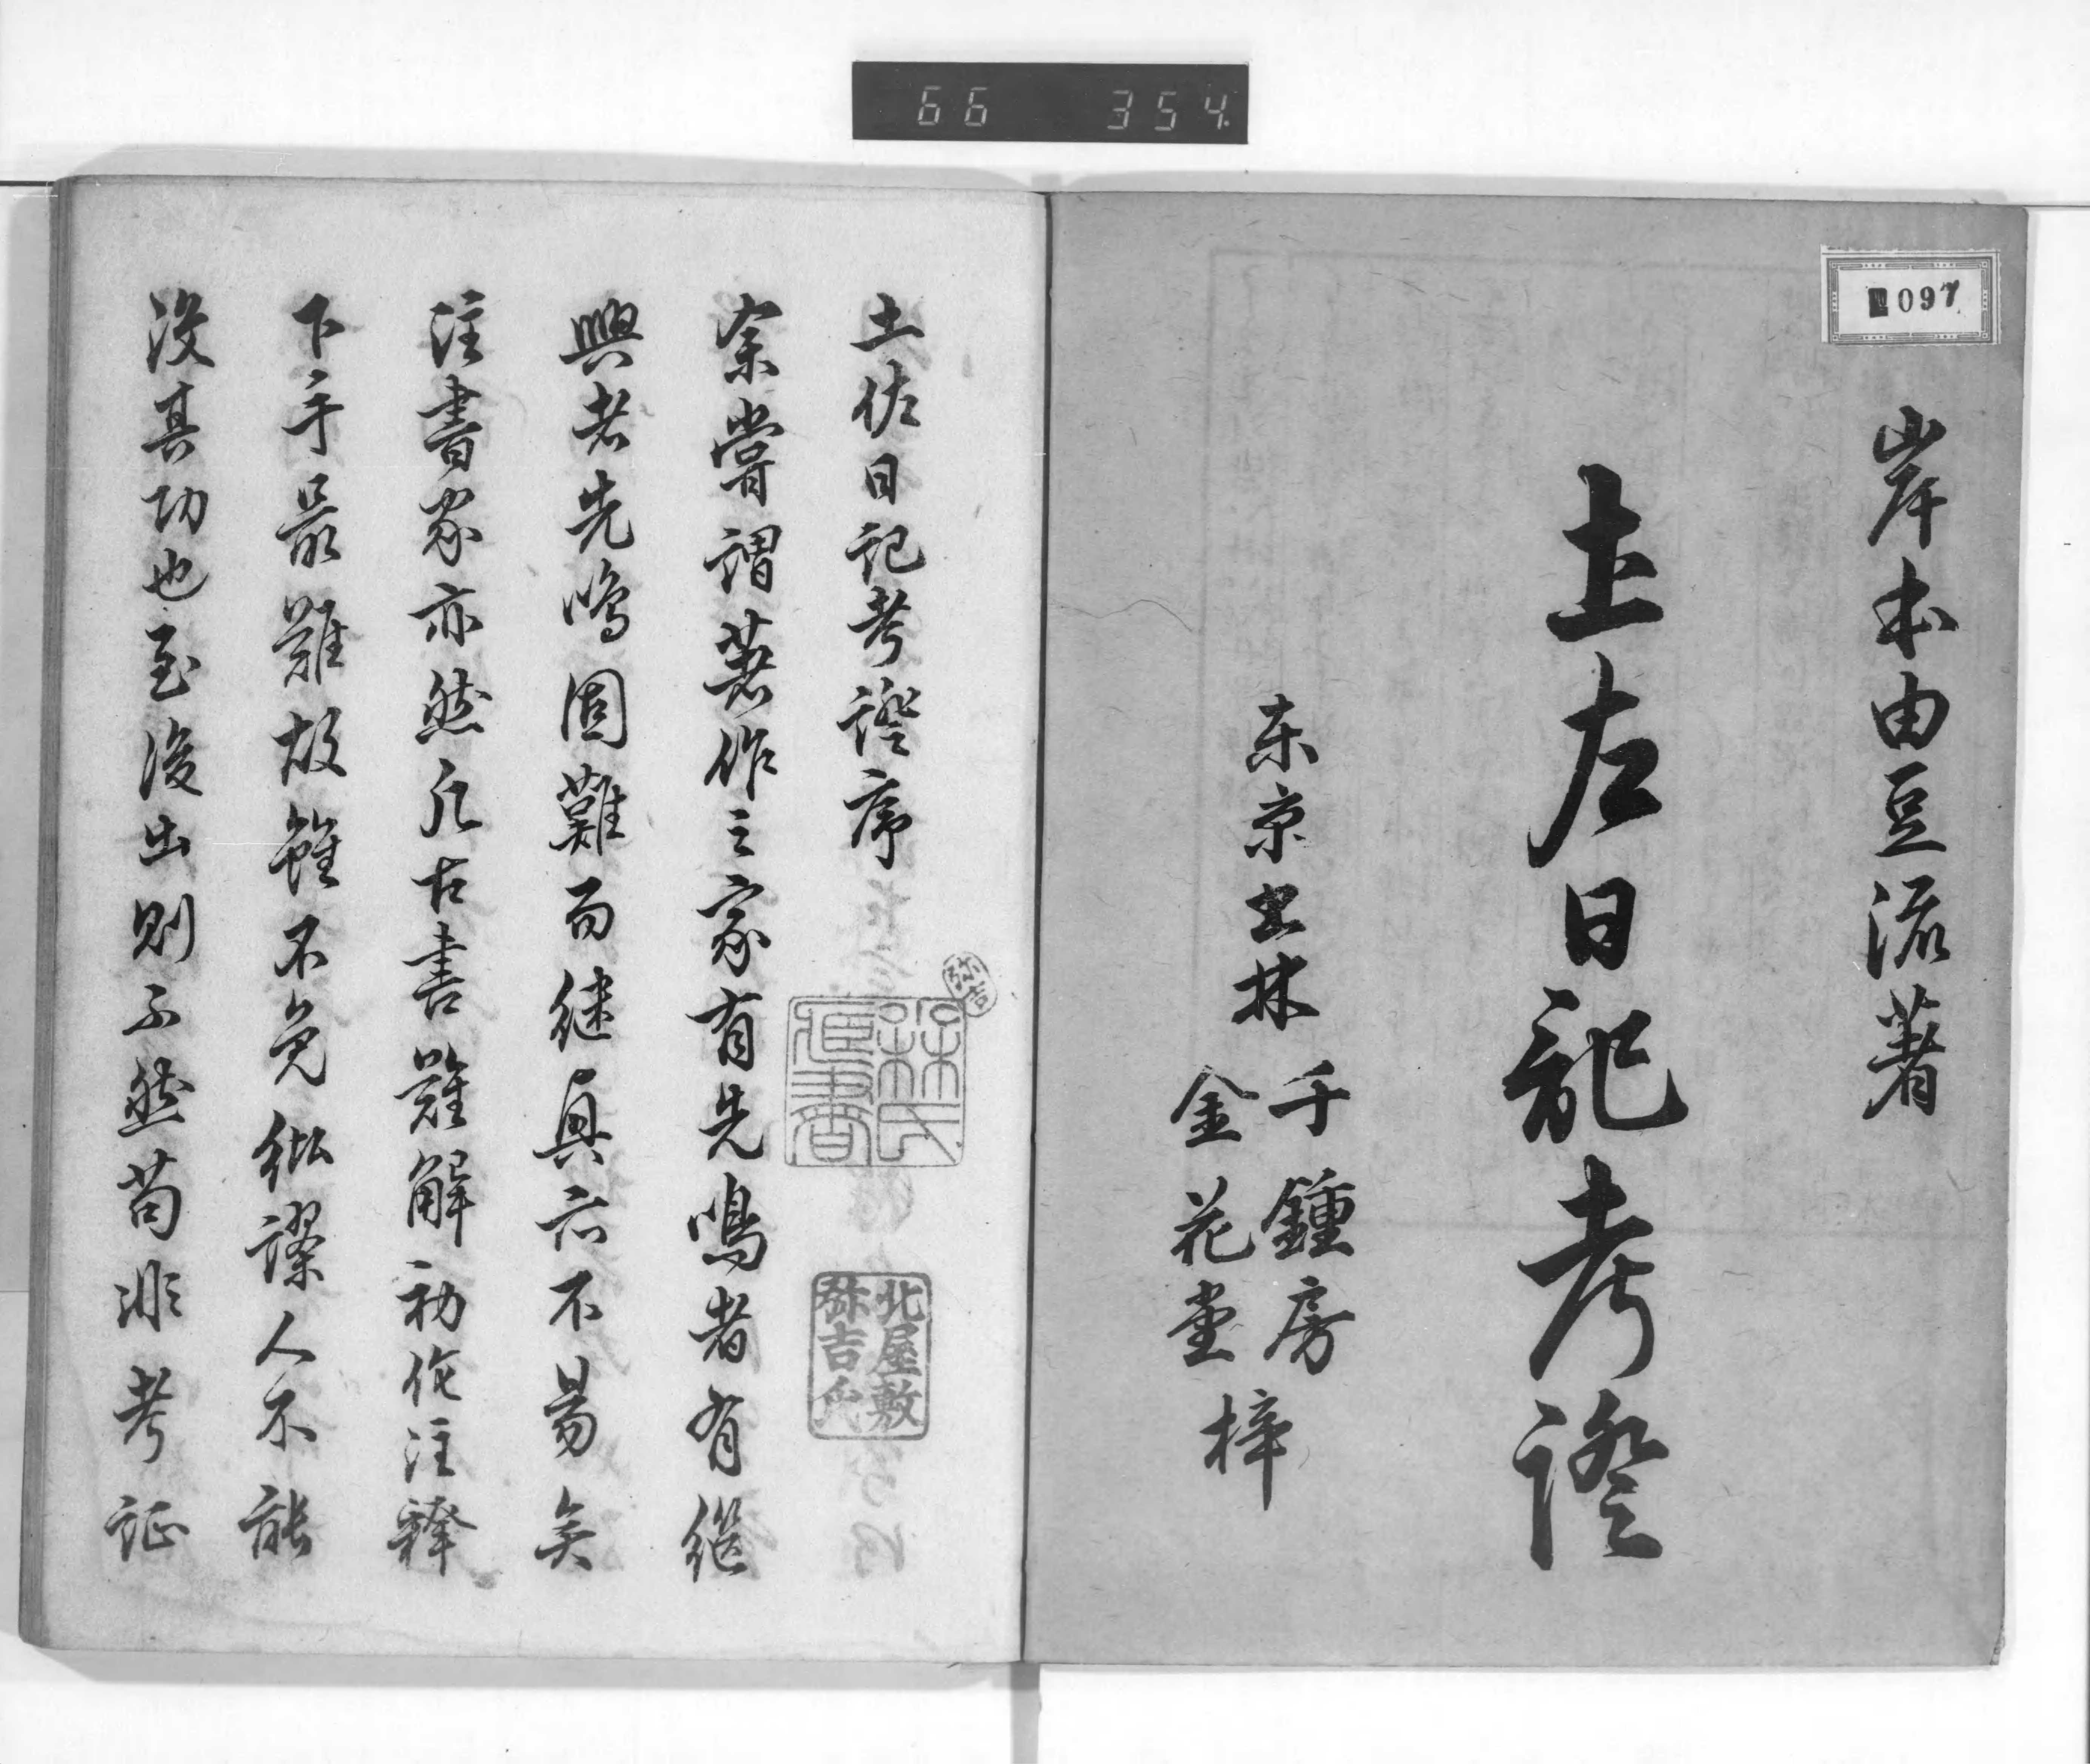 66 354
097
岸本由豆流著
土左日記考證
東京書林
千鍾房
金花堂
梓
土佐日記考證序
余嘗謂著作之家有先鳴者有継
興者先鳴固難而継興亦不易矣
注書家亦然凡古書難解初作注釋
下手最難故雖不免紕謬人不能
没其功也至後出則不然苟非考証
弥吉
林氏蔵書
北屋敷
弥吉氏